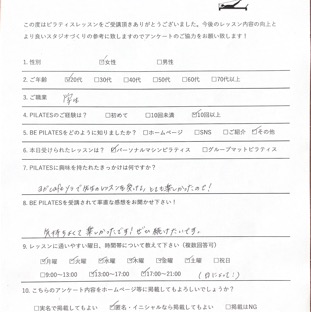 この度はピラティスレッスンをご受講頂きありがとうございました。今後のレッスン内容の向上と
より良いスタジオづくりの参考に致しますのでアンケートのご協力をお願い致します！
1. 性別 ☑女性 □男性
2. ご年齢 ☑20代 □30代 □40代 □50代 □60代 □70代以上
3. ご職業 学生
4. PILATESのご経験は？ □初めて □10回未満 ☑10回以上
5. BE PILATESをどのように知りましたか？ □ホームページ □SNS □ご紹介 ☑その他
6. 本日受けられたレッスンは？ ☑パーソナルマシンピラティス □グループマットピラティス
7. PILATESに興味を持たれたきっかけは何ですか？
8. BE PILATESを受講されて率直な感想をお聞かせ下さい！
気持ちよくて楽しかったです！ぜひ続けたいです。
9. レッスンに通いやすい曜日、時間帯について教えて下さい（複数回答可）
☑月曜 ☑火曜 ☑水曜 ☑木曜 ☑金曜 ☑土曜 □祝日
□9:00〜13:00 ☑13:00〜17:00 ☑17:00〜21:00
10. こちらのアンケート内容をホームページ等に掲載してもよろしいでしょうか？
□実名で掲載してもよい ☑匿名・イニシャルなら掲載してもよい □掲載はNG